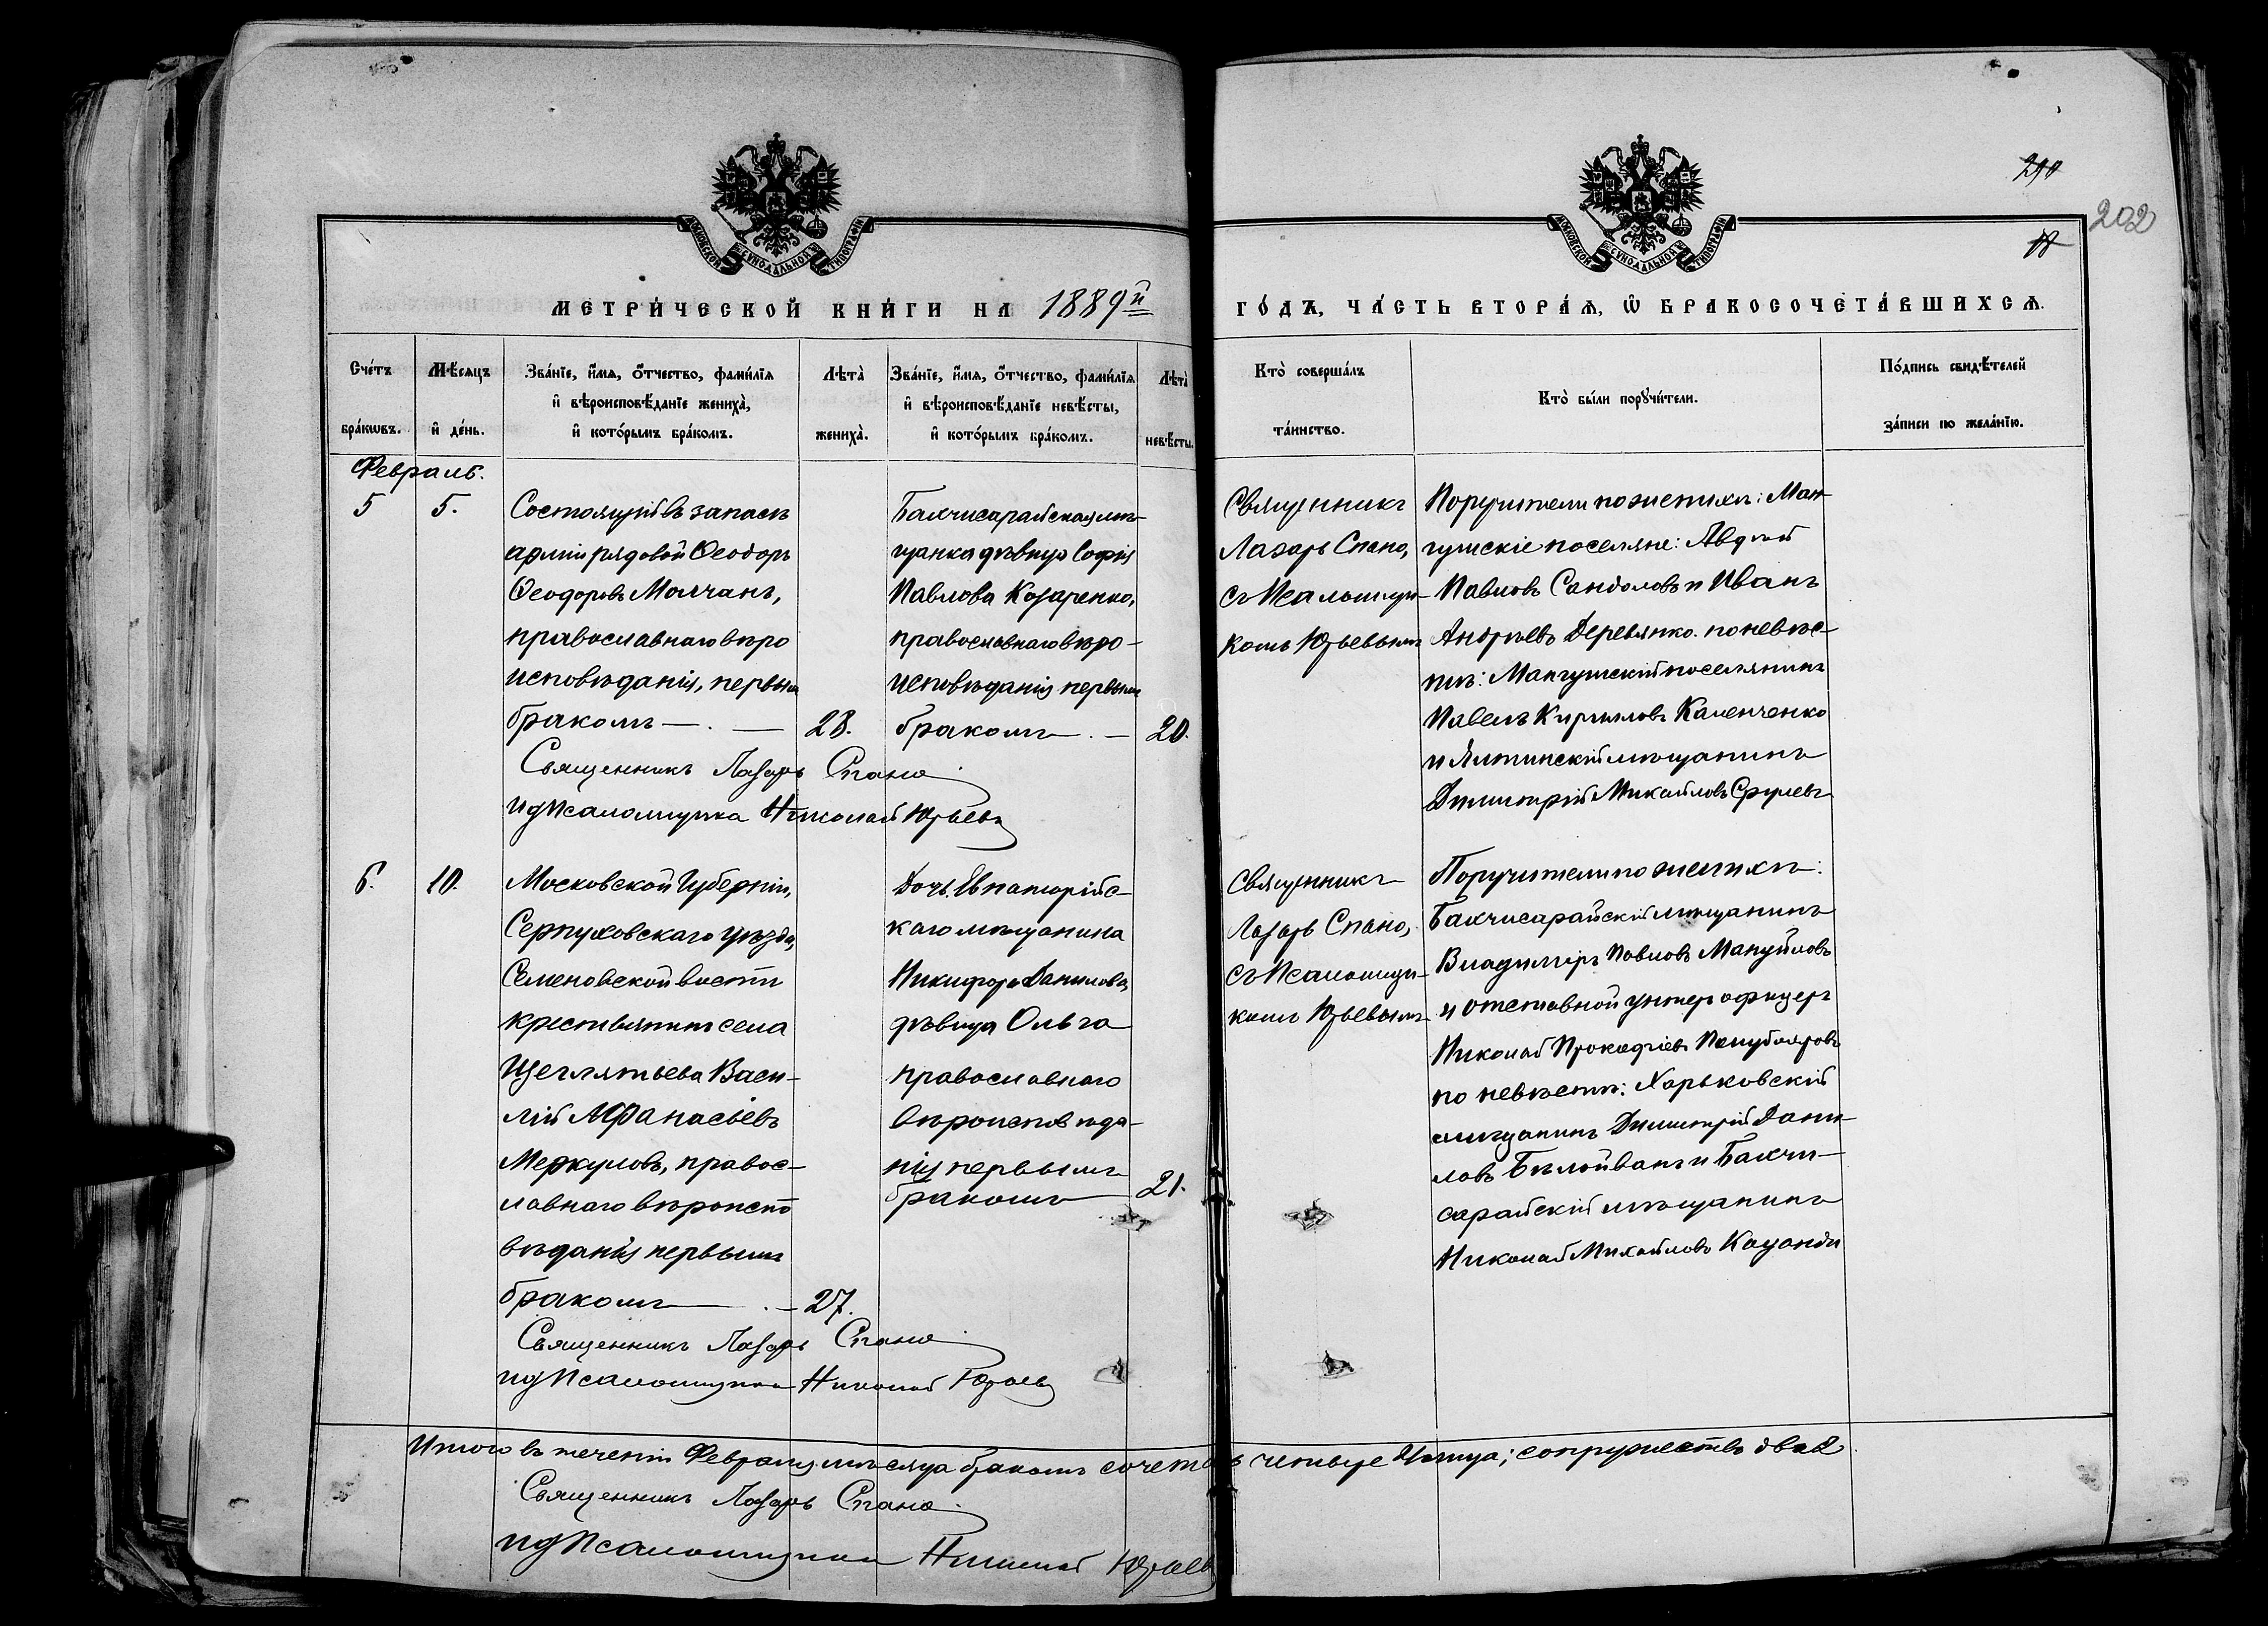 290
202
МОСКОВСКОЙ СѴНОДАЛЬНОЙ ТИПОГРАФІИ
МОСКОВСКОЙ СѴНОДАЛЬНОЙ ТИПОГРАФІИ
МЕТРИ́ЧЕСКОЙ КНИ́ГИ НА 1889й
ГО́ДЪ, ЧА́СТЬ ВТОРА́Ѧ, Ѡ҆ БРАКОСОЧЕТА́ВШИХСѦ.
Сче́тъ бра́кѡвъ.
Мѣ́сяцъ и҆ де́нь.
Зва́нїе, и҆́мѧ, ѻ҆́тчество, фами́лїѧ
и҆ вѣроисповѣ́данїе жениха̀,
и҆ кото́рымъ бра́комъ.
Лѣта̀ жениха̀.
Зва́нїе, и҆́мѧ, ѻ҆́тчество, фами́лїѧ
и҆ вѣроисповѣ́данїе невѣ́сты,
и҆ кото́рымъ бра́комъ.
Лѣта̀ невѣ́сты.
Кто̀ соверша́лъ
та́инство.
Кто̀ бы́ли порꙋчи́тели.
По́дпись свидѣ́телей
за́писи по жела́нїю.
Февраль.
5
5.
Состоящій въ запасѣ
арміи рядовой Ѳеодоръ
Ѳеодоровъ Молчанъ,
православнаго вѣро
исповѣданія, первымъ
бракомъ — . — 28.
Бахчисарайская мѣ-
щанка дѣвица Софія
Павлова Козаренко,
православнаго вѣро-
исповѣданія первымъ
бракомъ . — 20.
Священникъ
Лазарь Спано,
съ Псаломщи-
комъ Юрьевымъ
Поручители по женихѣ: Ман-
гушскіе поселяне: Авдій
Павловъ Сандоловъ и Иванъ
Андреевъ Деревянко. по невѣс-
тѣ: Мангушскій поселянинъ
Павелъ Кирилловъ Каленченко
и Ялтинскій мѣщанинъ
Димитрій Михайловъ
Священникъ Лазарь Спано
ид Псаломщика Николай Юрьевъ
6.
10.
Московской Губерніи,
Серпуховскаго уѣзда,
Семеновской вости
крестьянинъ села
Щеглятьева Васи-
лій Аѳанасіевъ
Меркуловъ, правос-
лавнаго вѣроиспо
вѣданія первымъ
бракомъ . — 27.
Дочь Евпаторійс-
каго мѣщанина
Никифора Данилова,
дѣвица Ольга
православнаго
вѣроисповѣда-
нія первымъ
бракомъ — 21.
Священникъ
Лазарь Спано,
съ Псаломщи-
комъ Юрьевымъ
Поручители по женихѣ:
Бахчисарайскій мѣщанинъ
Владиміръ Павловъ Мануйловъ
и отставной унтеръ офицеръ
Николай Прокофіевъ
по невѣстѣ: Харьковскій
мѣщанинъ Димитрій Дани-
ловъ и Бахчи-
сарайскій мѣщанинъ
Николай Михайловъ
Священникъ Лазарь Спано
ид Псаломщика Николай Юрьевъ
Итого въ теченіи Февраля мѣсяца бракомъ сочета въ четыре лица; супружествъ два 2
Священникъ Лазарь Спано.
ид Псаломщика Николай Юрьевъ